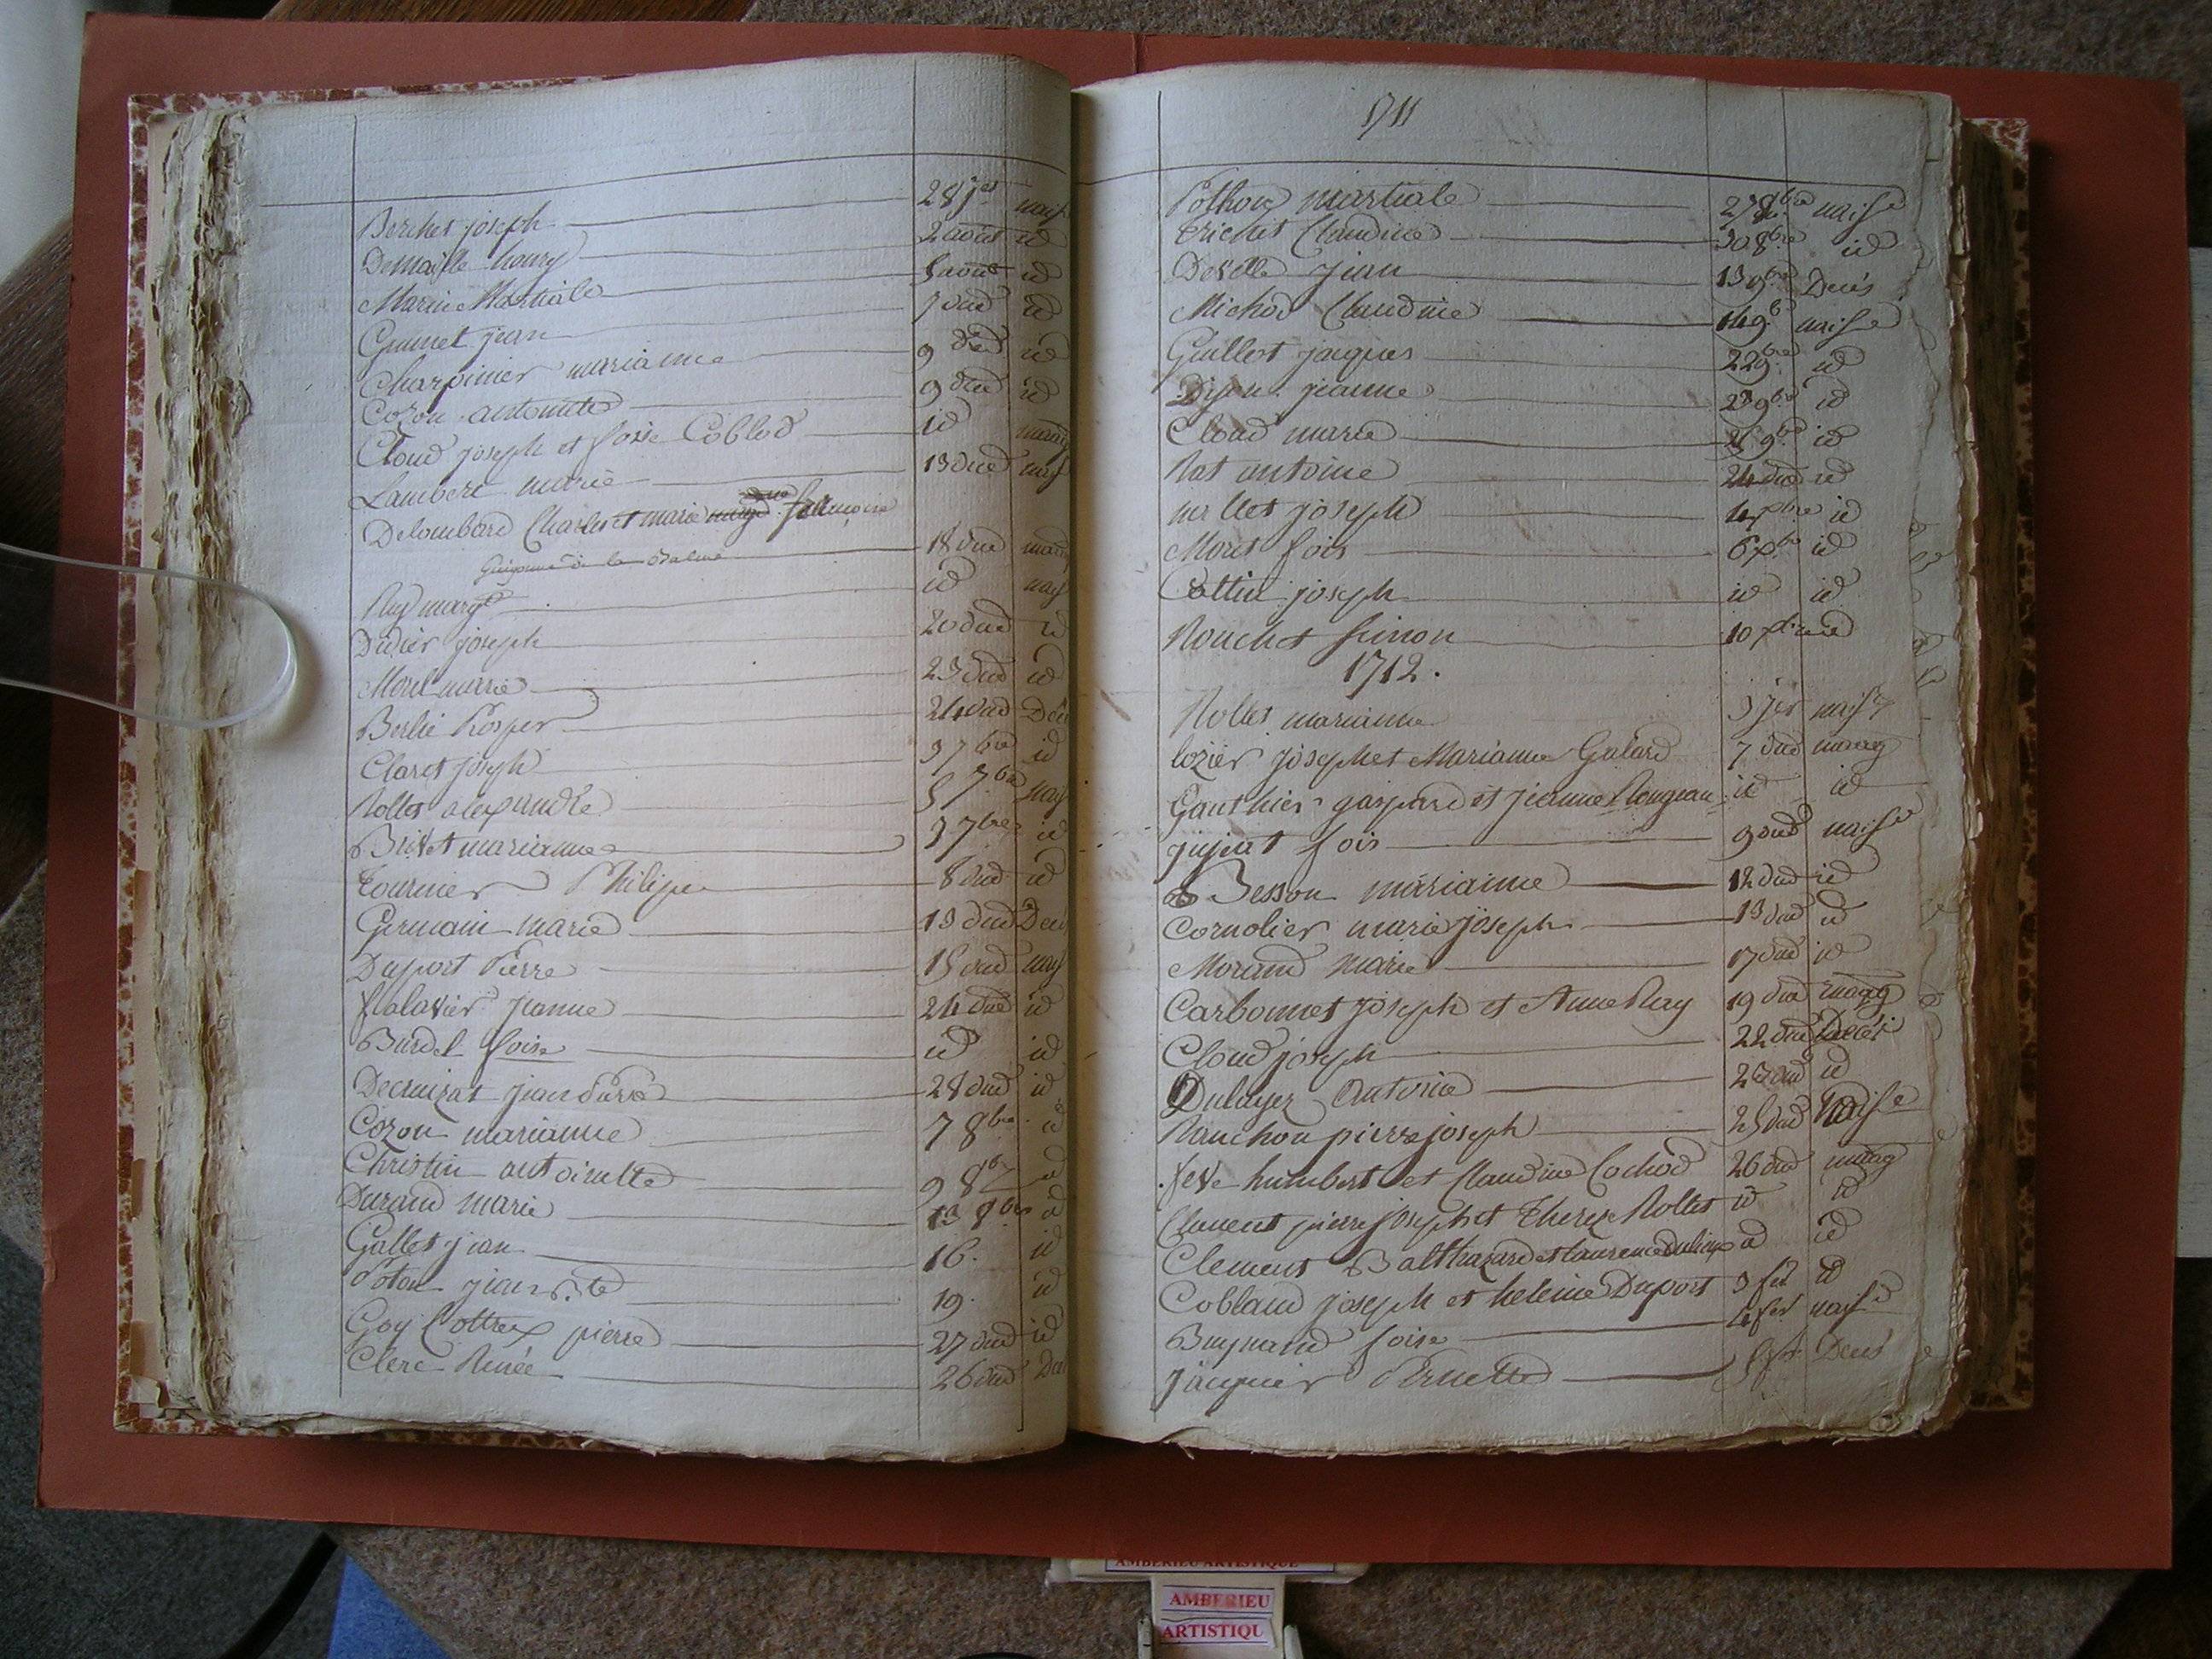 Berchet joseph 28 jet naisf
Demaille henry 2 aout id
Marin Martiale 5 aout id
Grumet jean 7 dud id
Charpinier marianne 9 dud id
Cozon antoinete 9 dud id
Cloud joseph et foise Coblod id mariag
Lambert marie 13 dud naisf
Delombard Charles et marie
18 dud mariag
Rey margte id naisf
Didier joseph 20 dud id
Morel marie 23 dud id
Berlie Prosper 24 dud Deces
Claret joseph 3 7bre id
Rollet alexandre 5 7bre naisf
Brivet marianne 7bre id
Tournier Philipe 8 dud id
Germain marie 13 dud Deces
Duport Pierre 15 dud naisf
flalavier jeanne 24 dud id
Burdel foise id id
Decruizat jean Pierre 28 dud id
Cozon marianne 7 8bre id
Christin antoinette 9 8bre id
Durand marie 13 8bre id
Gallet jean 16. id
Poton jean B.te 19. id
Goy Cottrex pierre 27 dud id
Clerc Renée 26 dud Deces
1711
Pothon martiale 27 8bre naise
Trichet Claudine 30 8bre id
Deville jean 13 9bre Deces
Michod Claudine 14 9b naise
Guillot jacques 22 9bre id
Dijon jeanne 23 9bre id
Cloud marie 9bre id
Rat antoine 24 dud id
mallet joseph 4 xbre id
Moret fois 6 xbre id
Cottin joseph id id
Rouchet Simon 10 xbre id
1712.
Rollet marianne 3 jer naise
lozier joseph et Marianne Galard 7 dud mariag
Gauthier gaspard et jeanne Rougeau id id
jujeat fois 9 dud naise
Besson marianne 12 dud id
Cornolier marie joseph 13 dud id
Morand marie 17 dud id
Carbonnet joseph et Anne Rey 19 dud mariag
Cloud joseph 22 dud Decés
Dulayer Antoine 23 dud id
Ranchon pierre joseph 25 dud Naise
feve humbert et Claudine Cochod 26 dud mariag
Clement pierre joseph et Therese Rollet id id
Clement Balthazard et laurence id id
Cobland joseph et heleine Duport 3 fer id
Buynand foise 4 fer naise
jacquier Pernette 5 fer Decés
AMBERIEU ARTISTIQUE
AMBERIEU
ARTISTIQU